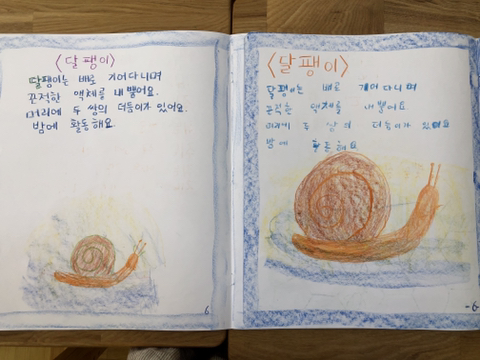 〈달팽이〉
달팽이는 배로 기어다니며
끈적한 액체를 내뿜어요.
머리에 두 쌍의 더듬이가 있어요.
밤에 활동해요.
6
〈달팽이〉
달팽이는 배로 기어다니며
끈적한 액체를 내뿜어요
머리에 두 쌍의 더듬이가 있어요
밤에 활동해요
-6